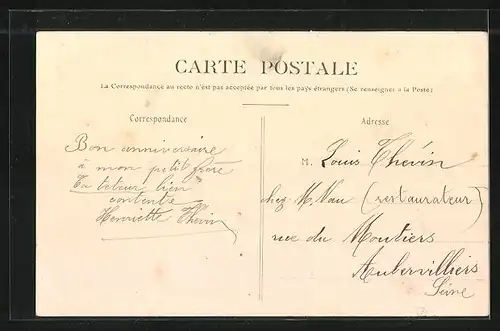 CARTE POSTALE
La Correspondance au recto n'est pas acceptée par tous les pays étrangers (Se renseigner à la Poste)
Correspondance
Bon anniversaire
à mon petit frère
Ta
bien
contente
Henriette Thévin
Adresse
M. Louis Thévin
chez M. Vau (restaurateur)
rue du Moutiers
Aubervilliers
Seine